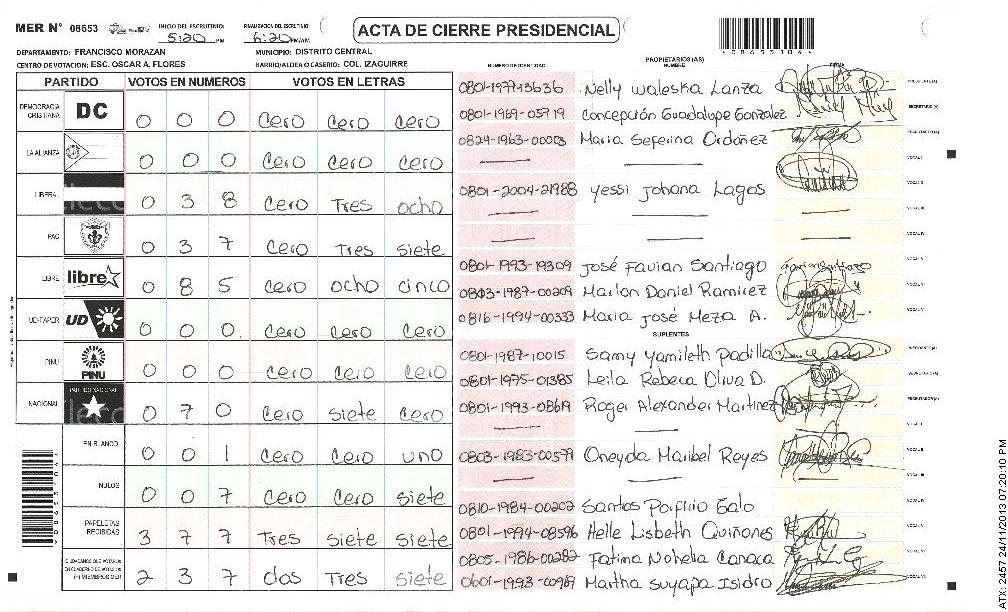 MER N° 08653 INICIO DEL ESCRUTINIO: 5:20 PM FINALIZACION DEL ESCRUTINIO 6:20 PM/AM
ACTA DE CIERRE PRESIDENCIAL
DEPARTAMENTO: FRANCISCO MORAZAN MUNICIPIO: DISTRITO CENTRAL
CENTRO DE VOTACION: ESC. OSCAR A. FLORES BARRIO/ALDEA O CASERIO: COL. IZAGUIRRE
PARTIDO VOTOS EN NUMEROS VOTOS EN LETRAS
DEMOCRACIA CRISTIANA DC 0 0 0 Cero Cero Cero
LA ALIANZA 0 0 0 Cero Cero Cero
LIBERAL 0 3 8 Cero Tres ocho
PAC 0 3 7 Cero Tres siete
LIBRE libre 0 8 5 Cero ocho cinco
UD-FAPER UD 0 0 0 Cero Cero Cero
PINU PINU 0 0 0 Cero Cero Cero
NACIONAL PARTIDO NACIONAL 0 7 0 Cero siete Cero
EN BLANCO 0 0 1 Cero Cero uno
NULOS 0 0 7 Cero Cero siete
PAPELETAS RECIBIDAS 3 7 7 Tres siete siete
CIUDADANOS QUE VOTARON EN CUADERNO DE VOTACION (+) MIEMBROS MER 2 3 7 dos Tres siete
NUMERO DE IDENTIDAD PROPIETARIOS (AS) NOMBRE FIRMA
0801-1977-13636 Nelly Waleska Lanza PRESIDENTE (A)
0801-1969-05719 Concepción Guadalupe Gonzalez SECRETARIO (A)
0824-1963-00003 Maria Seferina Ordoñez ESCRUTADOR (A)
VOCAL I
0801-2004-21988 Yessi Johana Lagos VOCAL II
VOCAL III
VOCAL IV
0801-1993-19309 José Favian Santiago VOCAL V
0803-1987-00209 Marlon Daniel Ramirez VOCAL VI
0816-1994-00333 Maria José Meza A. VOCAL VII
SUPLENTES
0801-1987-10015 Samy Yamileth Padilla PRESIDENTE (A)
0801-1975-01385 Leila Rebeca Oliva D. SECRETARIO (A)
0801-1993-08619 Roger Alexander Martinez ESCRUTADOR (A)
VOCAL I
0803-1983-00579 Oneyda Maribel Reyes VOCAL II
VOCAL III
0810-1984-00202 Santos Porfirio Galo VOCAL IV
0801-1994-08596 Helle Lisbeth Quiñones VOCAL V
0805-1986-00282 Fatima Nohelia Canaca VOCAL VI
0601-1993-00989 Martha Suyapa Isidro VOCAL VII
ATX: 2457 24/11/2013 07:20:10 PM